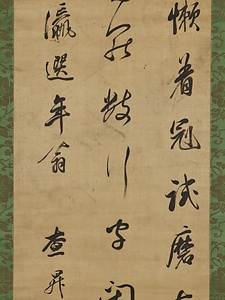 懒着冠试磨
数行字闲
瀛选年翁 查昇